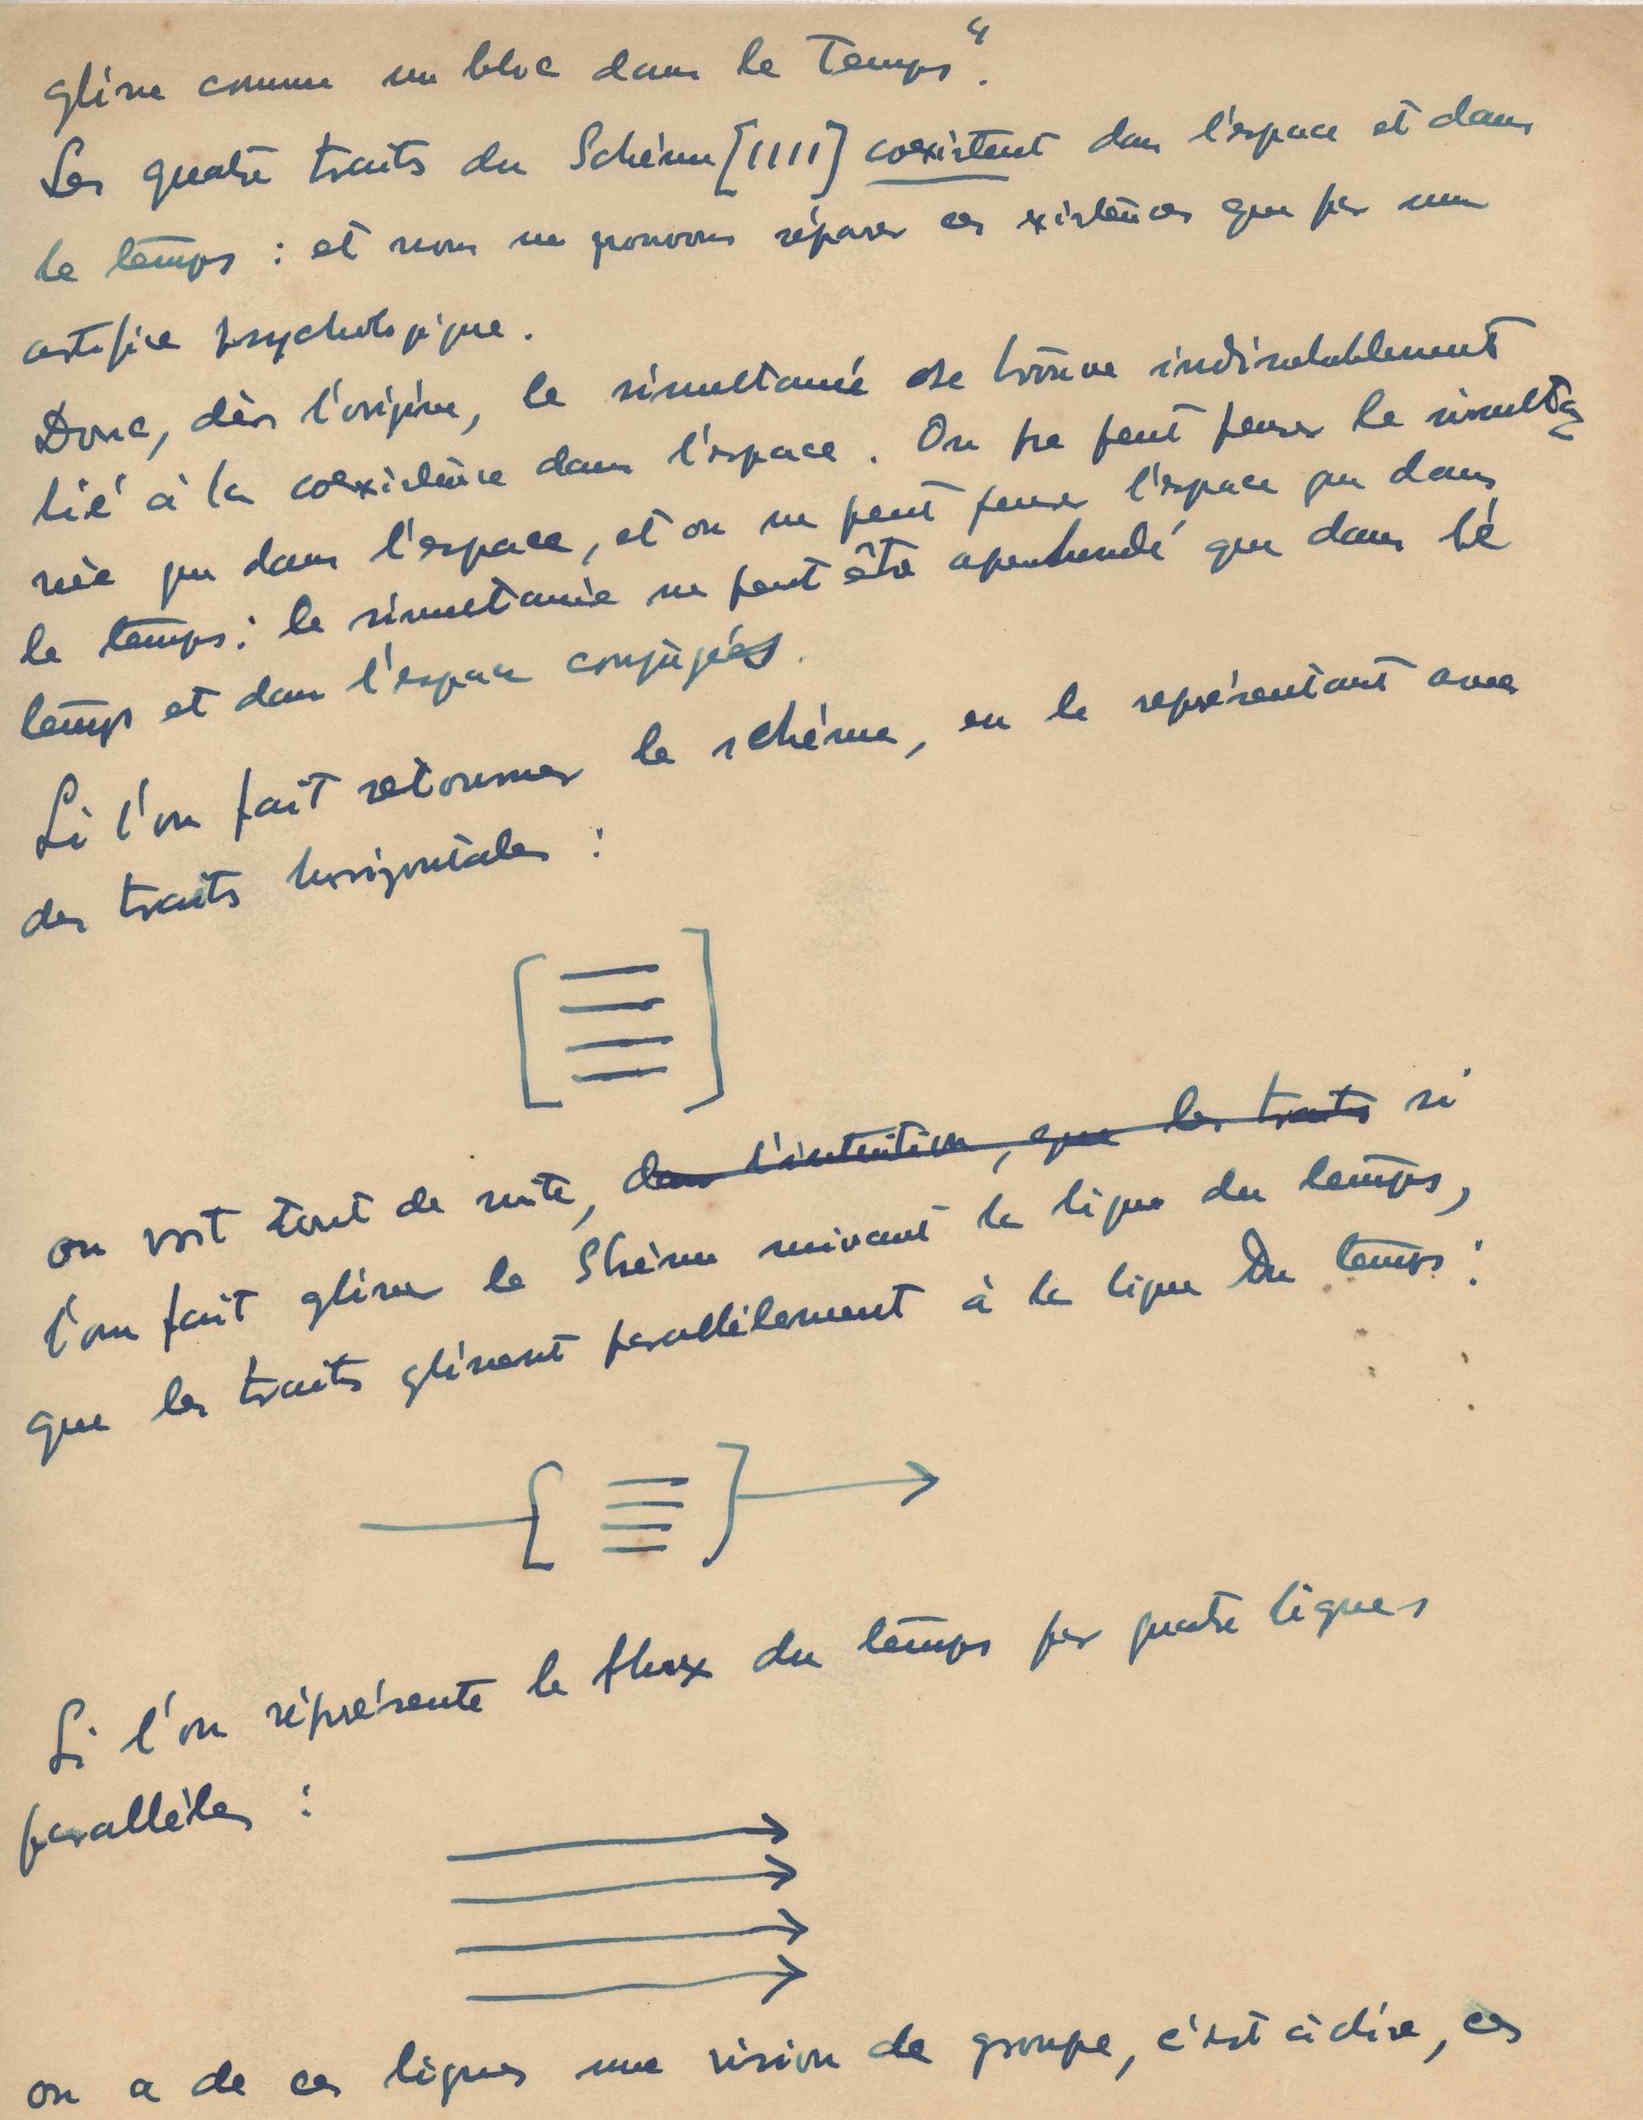 glisse comme un bloc dans le Temps".
Les quatre traits du Schème [||||] coexistent dans l'espace et dans
le temps : et nous ne pouvons séparer ces existences que par une
artifice psychologique.
Donc, dès l'origine, le simultané se trouve indissolublement
lié à la coexistence dans l'espace. On ne peut penser le simulta
née que dans l'espace, et on ne peut penser l'espace que dans
le temps : le simultanée ne peut être apréhendé que dans le
temps et dans l'espace conjugés.
Si l'on fait retourner le schème, en le représentant avec
des traits horizontales :
on voit tout de suite, dans l'intuition, que les traits si
l'on fait glisser le Shème suivant la ligne du temps,
que les traits glissent parallèlement à la ligne Du temps :
Si l'on réprésente le flux du temps par quatre lignes
parallèles :
on a de ces lignes une vision de groupe, c'est à dire, ces